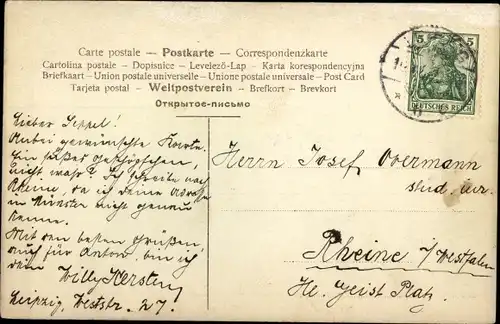 Carte postale — Postkarte — Correspondenzkarte
Cartolina postale - Dopisnice - Levelező-Lap - Karta korespondencyjna
Briefkaart - Union postale universelle - Unione postale universale - Post Card
Tarjeta postal - Weltpostverein - Brefkort - Brevkort
Открытое-письмо
5 5
DEUTSCHES REICH
Lieber Seppel!
Anbei gewünschte Karte.
Ein süßes Geschöpfchen,
nicht wahr? Ich schreibe nach
Rheine, da ich deine Adresse
in Münster nicht genau
kenne.
Mit den besten Grüßen,
auch für Anton, bin ich
dein Willy Kersten
Leipzig, Weststr. 27.
Herrn Josef Overmann
stud.
Rheine i/Westfalen
Hl. Geist Platz.